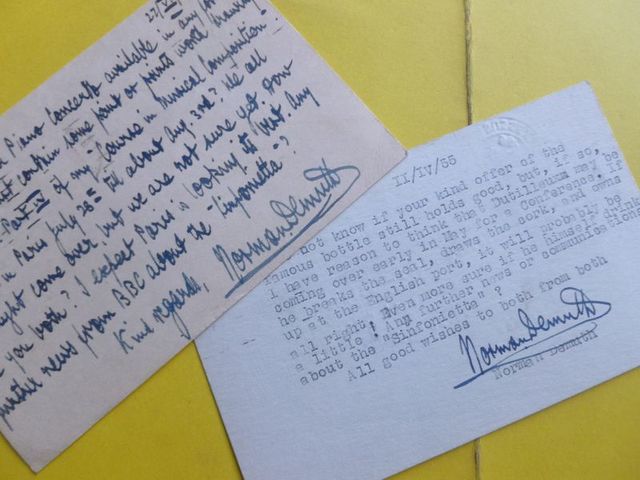 27/VII
Piano Concerto available in any
contain some point or points worth
Part IV of my "Course in Musical Composition.
in Paris July 28th till about Aug 3rd? We all
might come over, but we are not sure yet. How
you both? I expect Paris is looking its best. Any
further news from BBC about the "Sinfonietta"?
Kind regards,
Norman Demuth
11/IV/55
not know if your kind offer of the
famous bottle still holds good, but, if so,
i have reason to think the Dutilleum may be
coming over early in May for a Conference. If
he breaks the seal, draws the cork, and owns
up at the English port, it will probably be
all right! Even more sure if he himself drinks
a little! Any further news or communication
about the "Sinfonietta" ?
All good wishes to both from both
Norman Demuth
Norman Demuth